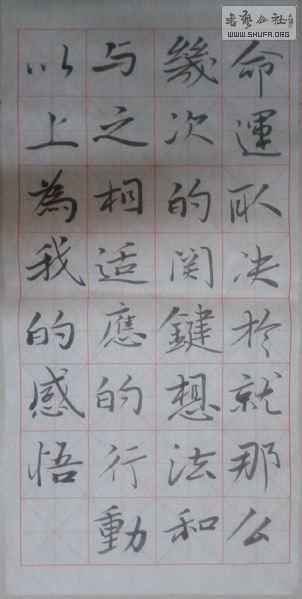 命運取决於就那么
幾次的関鍵想法和
与之相适應的行動
以上為我的感悟
书艺公社
WWW.SHUFA.ORG